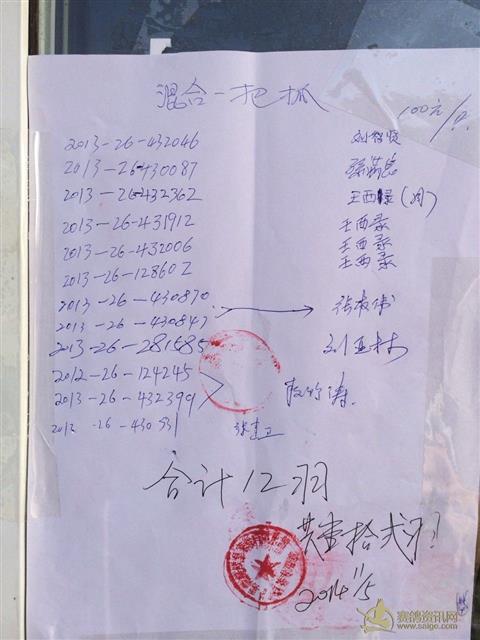 混合一把抓
100元/
2013-26-432046 刘智贤
2013-26-430087
2013-26-432362 王西录
2013-26-431912 王西录
2013-26-432006 王西录
2013-26-128602 王西录
2013-26-430870 张俊伟
2013-26-430847
2013-26-281585 刘亚林
2012-26-124245
2013-26-432399
2012-26-430531 张建卫
合计12羽
共壹拾贰羽
2014 11/5
赛鸽资讯网
www.saige.com